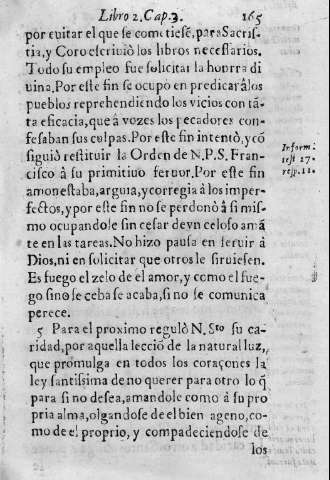 Libro 2. Cap. 3. 265
por euitar el que se cometiesẽ, para Sacris-
tia, y Coro escriuiò los libros necessarios.
Todo su empleo fue solicitar la honrra di
uina. Por este fin se ocupò en predicar â los
pueblos reprehendiendo los vicios con tã-
ta eficacia, que â vozes los pecadores con-
fesaban sus culpas. Por este fin intentò, y cõ
siguiò restituir la Orden de N. P. S. Fran-
cisco â su primitiuo feruor. Por este fin
amonestaba, arguia, y corregia â los imper-
fectos, y por este fin no se perdonò â si mis-
mo ocupandole sin cesar de vn celoso amã
te en las tareas. No hizo pausa en seruir â
Dios, ni en solicitar que otros le siruiesen.
Es fuego el zelo de el amor, y como el fue-
go sino se ceba se acaba, si no se comunica
perece.
5 Para el proximo regulò N. Sto su ca-
ridad, por aquella lecciõ de la natural luz,
que promulga en todos los coraçones la
ley santissima de no querer para otro lo q̃
para si no desea, amandole como â su pro
pria alma, olgandose de el bien ageno, co-
mo de el proprio, y compadeciendose de
los
Inform:
test 27.
resp. 11.